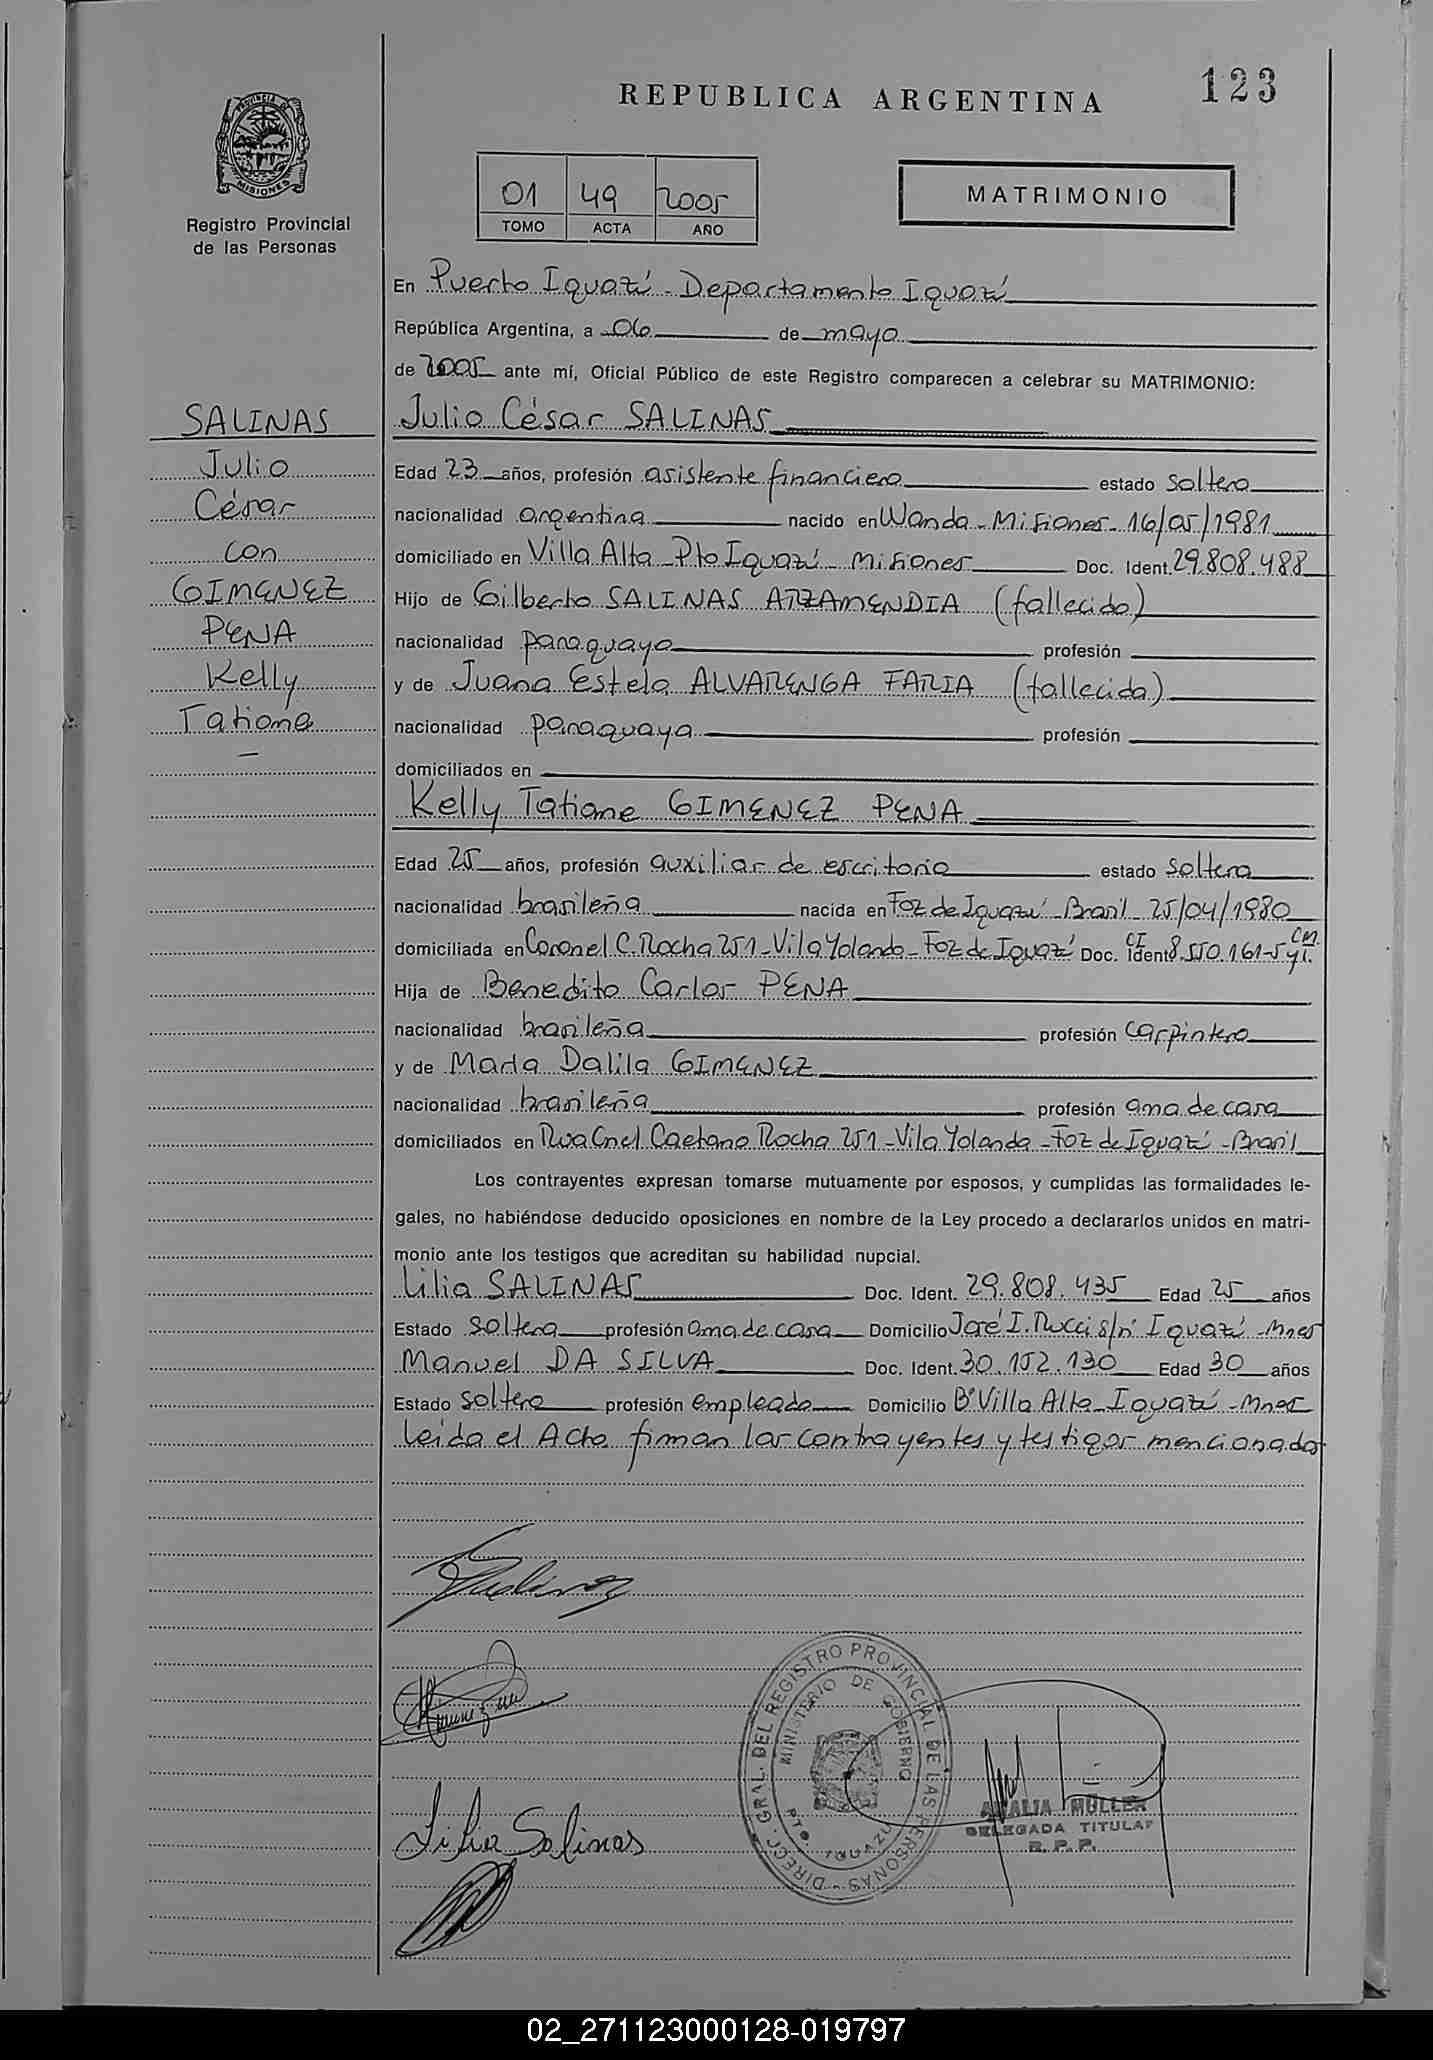 REPUBLICA ARGENTINA
123
PROVINCIA DE MISIONES
Registro Provincial
de las Personas
01 49 2005
TOMO ACTA AÑO
MATRIMONIO
En Puerto Iguazú - Departamento Iguazú
República Argentina, a 06 de mayo
de 2005 ante mí, Oficial Público de este Registro comparecen a celebrar su MATRIMONIO:
SALINAS
Julio
César
con
GIMENEZ
PENA
Kelly
Tatiane
Julio César SALINAS
Edad 23 años, profesión asistente financiero estado soltero
nacionalidad argentina nacido en Wanda - Misiones - 16/05/1981
domiciliado en Villa Alta - Pto Iguazú - Misiones Doc. Ident. 29.808.488
Hijo de Gilberto SALINAS ARZAMENDIA (fallecido)
nacionalidad paraguayo profesión
y de Juana Estela ALVARENGA FARIA (fallecida)
nacionalidad paraguaya profesión
domiciliados en
Kelly Tatiane GIMENEZ PENA
Edad 25 años, profesión auxiliar de escritorio estado soltera
nacionalidad brasileña nacida en Foz de Iguazú - Brasil - 25/04/1980
domiciliada en Coronel C. Rocha 251 - Vila Yolanda - Foz de Iguazú Doc. Ident CI 8.550.161-5
Hija de Benedito Carlos PENA
nacionalidad brasileña profesión carpintero
y de Marta Dalila GIMENEZ
nacionalidad brasileña profesión ama de casa
domiciliados en Rua Cnel Caetano Rocha 251 - Vila Yolanda - Foz de Iguazú - Brasil
Los contrayentes expresan tomarse mutuamente por esposos, y cumplidas las formalidades le-
gales, no habiéndose deducido oposiciones en nombre de la Ley procedo a declararlos unidos en matri-
monio ante los testigos que acreditan su habilidad nupcial.
Lilia SALINAS Doc. Ident. 29.808.435 Edad 25 años
Estado soltera profesión ama de casa Domicilio José I. Rucci s/nº Iguazú - Mnes
Manuel DA SILVA Doc. Ident. 30.152.130 Edad 30 años
Estado soltero profesión empleado Domicilio Bº Villa Alta - Iguazú - Mnes
Leída el Acta firman los contrayentes y testigos mencionados
Lilia Salinas
DIRECC. GRAL. DEL REGISTRO PROVINCIAL DE LAS PERSONAS
MINISTERIO DE GOBIERNO
PTO. IGUAZU
AMALIA MÜLLER
DELEGADA TITULAR
R. P. P.
02_271123000128-019797